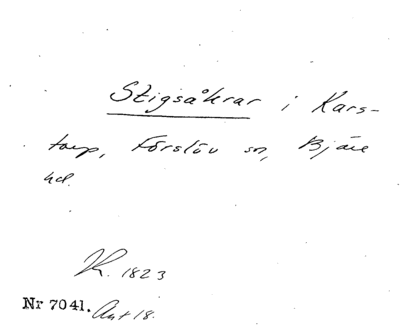 Stigsåkrar i Kars-
torp, Förslöv sn, Bjäre
hd.
K. 1823
Nr 7041. Ant 18.